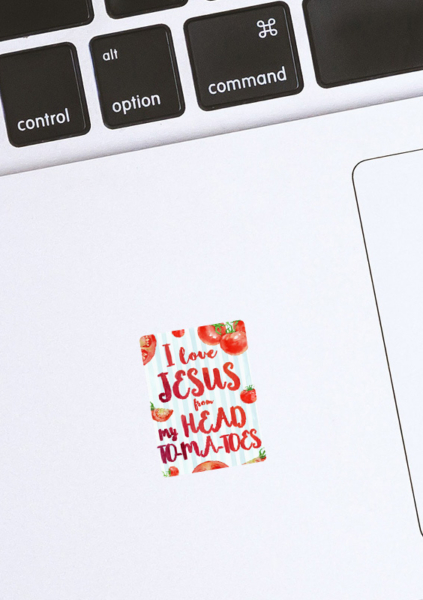 ⌘
alt
control
option
command
I love
JESUS
from
my HEAD
TO-MA-TOES